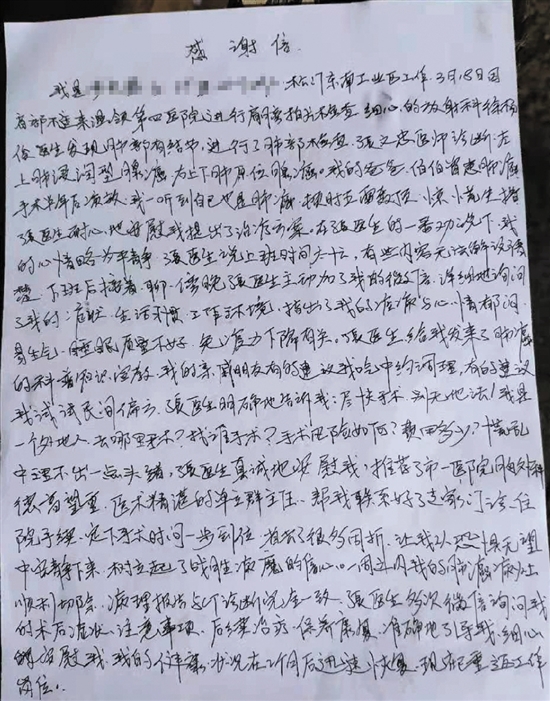 感谢信
我是 松门东南工业区工作,3月18日因
胃部不适来温岭第四医院进行胃肠拍片检查,细心的放射科徐杨
俊医生发现肺部有结节,进行了肺部检查,张文忠医师诊断:左
上肺浸润型腺癌,右上下肺原位腺癌。我的爸爸、伯伯皆患肺癌
手术半年后复发,我一听到自己也是肺癌,顿时五雷轰顶,惊慌失措
张医生耐心地安慰我提出了治疗方案,在张医生的一番劝说下,我
的心情略为平静。张医生说上班时间太忙,有些内容无法解说清
楚,下班后接着聊,傍晚张医生主动加了我的微信,详细地询问
了我的症状、生活习惯、工作环境,指出了我的病症与心情郁闷、
易生气、睡眠质量不好、免疫力下降有关。张医生给我发来了肺癌
的科普知识宣教,我的亲戚朋友有的建议我吃中药调理,有的建议
我试试民间偏方,张医生明确地告诉我:尽快手术,别无他法!我是
一个外地人,去哪里手术?找谁手术?手术风险如何?费用多少?慌乱
中理不出一点头绪,张医生真诚地安慰我,推荐了市一医院胸外科
德高望重、医术精湛的单立群主任,帮我联系好了专家门诊、住
院手续、定下手术时间一步到位,节省了很多周折,让我从恐惧无望
中安静下来,树立起了战胜病魔的信心。一周之内我的肺癌病灶
顺利切除,病理报告与诊断完全一致,张医生多次微信询问我
的术后症状、注意事项、后续治疗、保养康复,准确地引导我,细心
的安慰我,我的 状况在2个月后迅速恢复,现已重返工作
岗位。